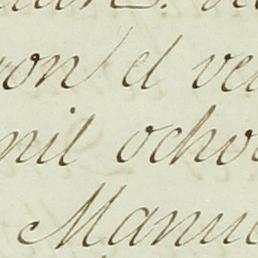 ron el ve
mil ocho
Manu